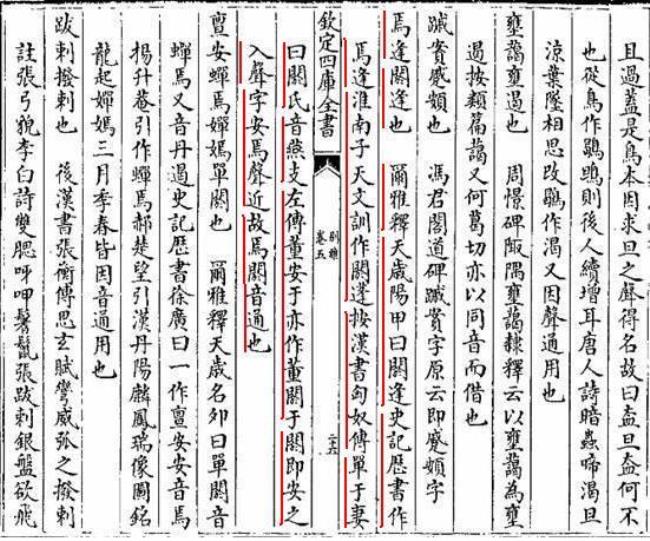 且過蓋是鳥本因求旦之聲得名故曰盍旦盍何不
也從鳥作鶡鴠則後人續增耳唐人詩暗蟲啼渴旦
涼葉墜相思改鶡作渴又因聲通用也
壅藹壅遏也 周憬碑陬隅壅藹隸釋云以壅藹為壅
遏按類篇藹又何葛切亦以同音而借也
蹙頞也 馮君閣道碑 字原云即蹙頞字
焉逢閼逢也 爾雅釋天歲陽甲曰閼逢史記歷書作
焉逢淮南子天文訓作閼蓬按漢書匈奴傳單于妻
欽定四庫全書
別雅
卷五
二十六
曰閼氏音燕支左傳董安于亦作董閼于閼即安之
入聲字安焉聲近故焉閼音通也
亶安蟬焉嬋嫣單閼也 爾雅釋天歲名卯曰單閼音
蟬焉又音丹遏史記歷書徐廣曰一作亶安安音焉
揚升菴引作蟬焉郝楚望引漢丹陽麟鳳瑞像圖銘
龍起嬋嫣三月季春皆因音通用也
跋剌撥剌也 後漢書張衡傳思玄賦彎威弧之撥剌
註張弓貌李白詩雙腮呀呷鬐鬣張跋剌銀盤欲飛